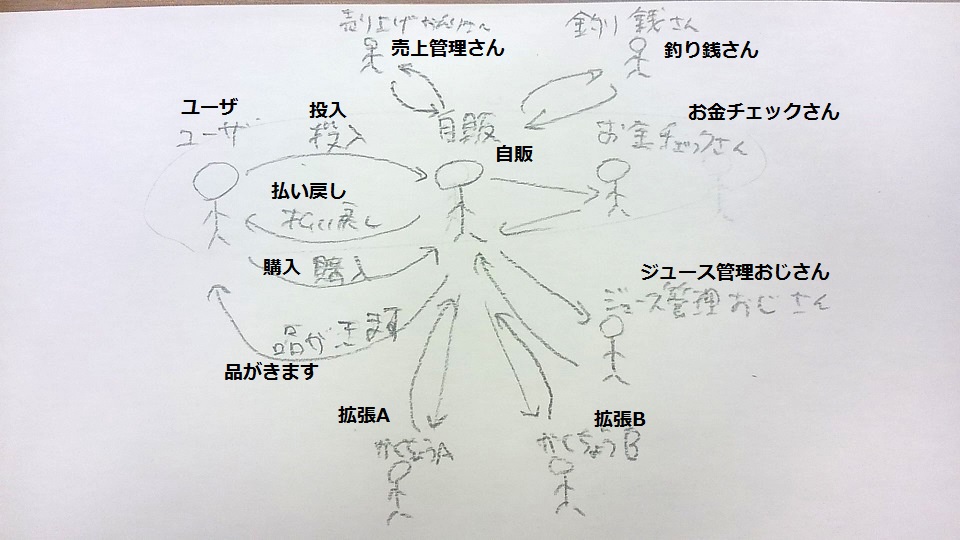 売り上げかんりさん
売上管理さん
釣り銭さん
釣り銭さん
ユーザ
ユーザ
投入
投入
自販
自販
お金チェックさん
お金チェックさん
払い戻し
払い戻し
購入 購入
ジュース管理おじさん
ジュース管理おじさん
品がきます
品がきます
拡張A
かくちょうA
拡張B
かくちょうB